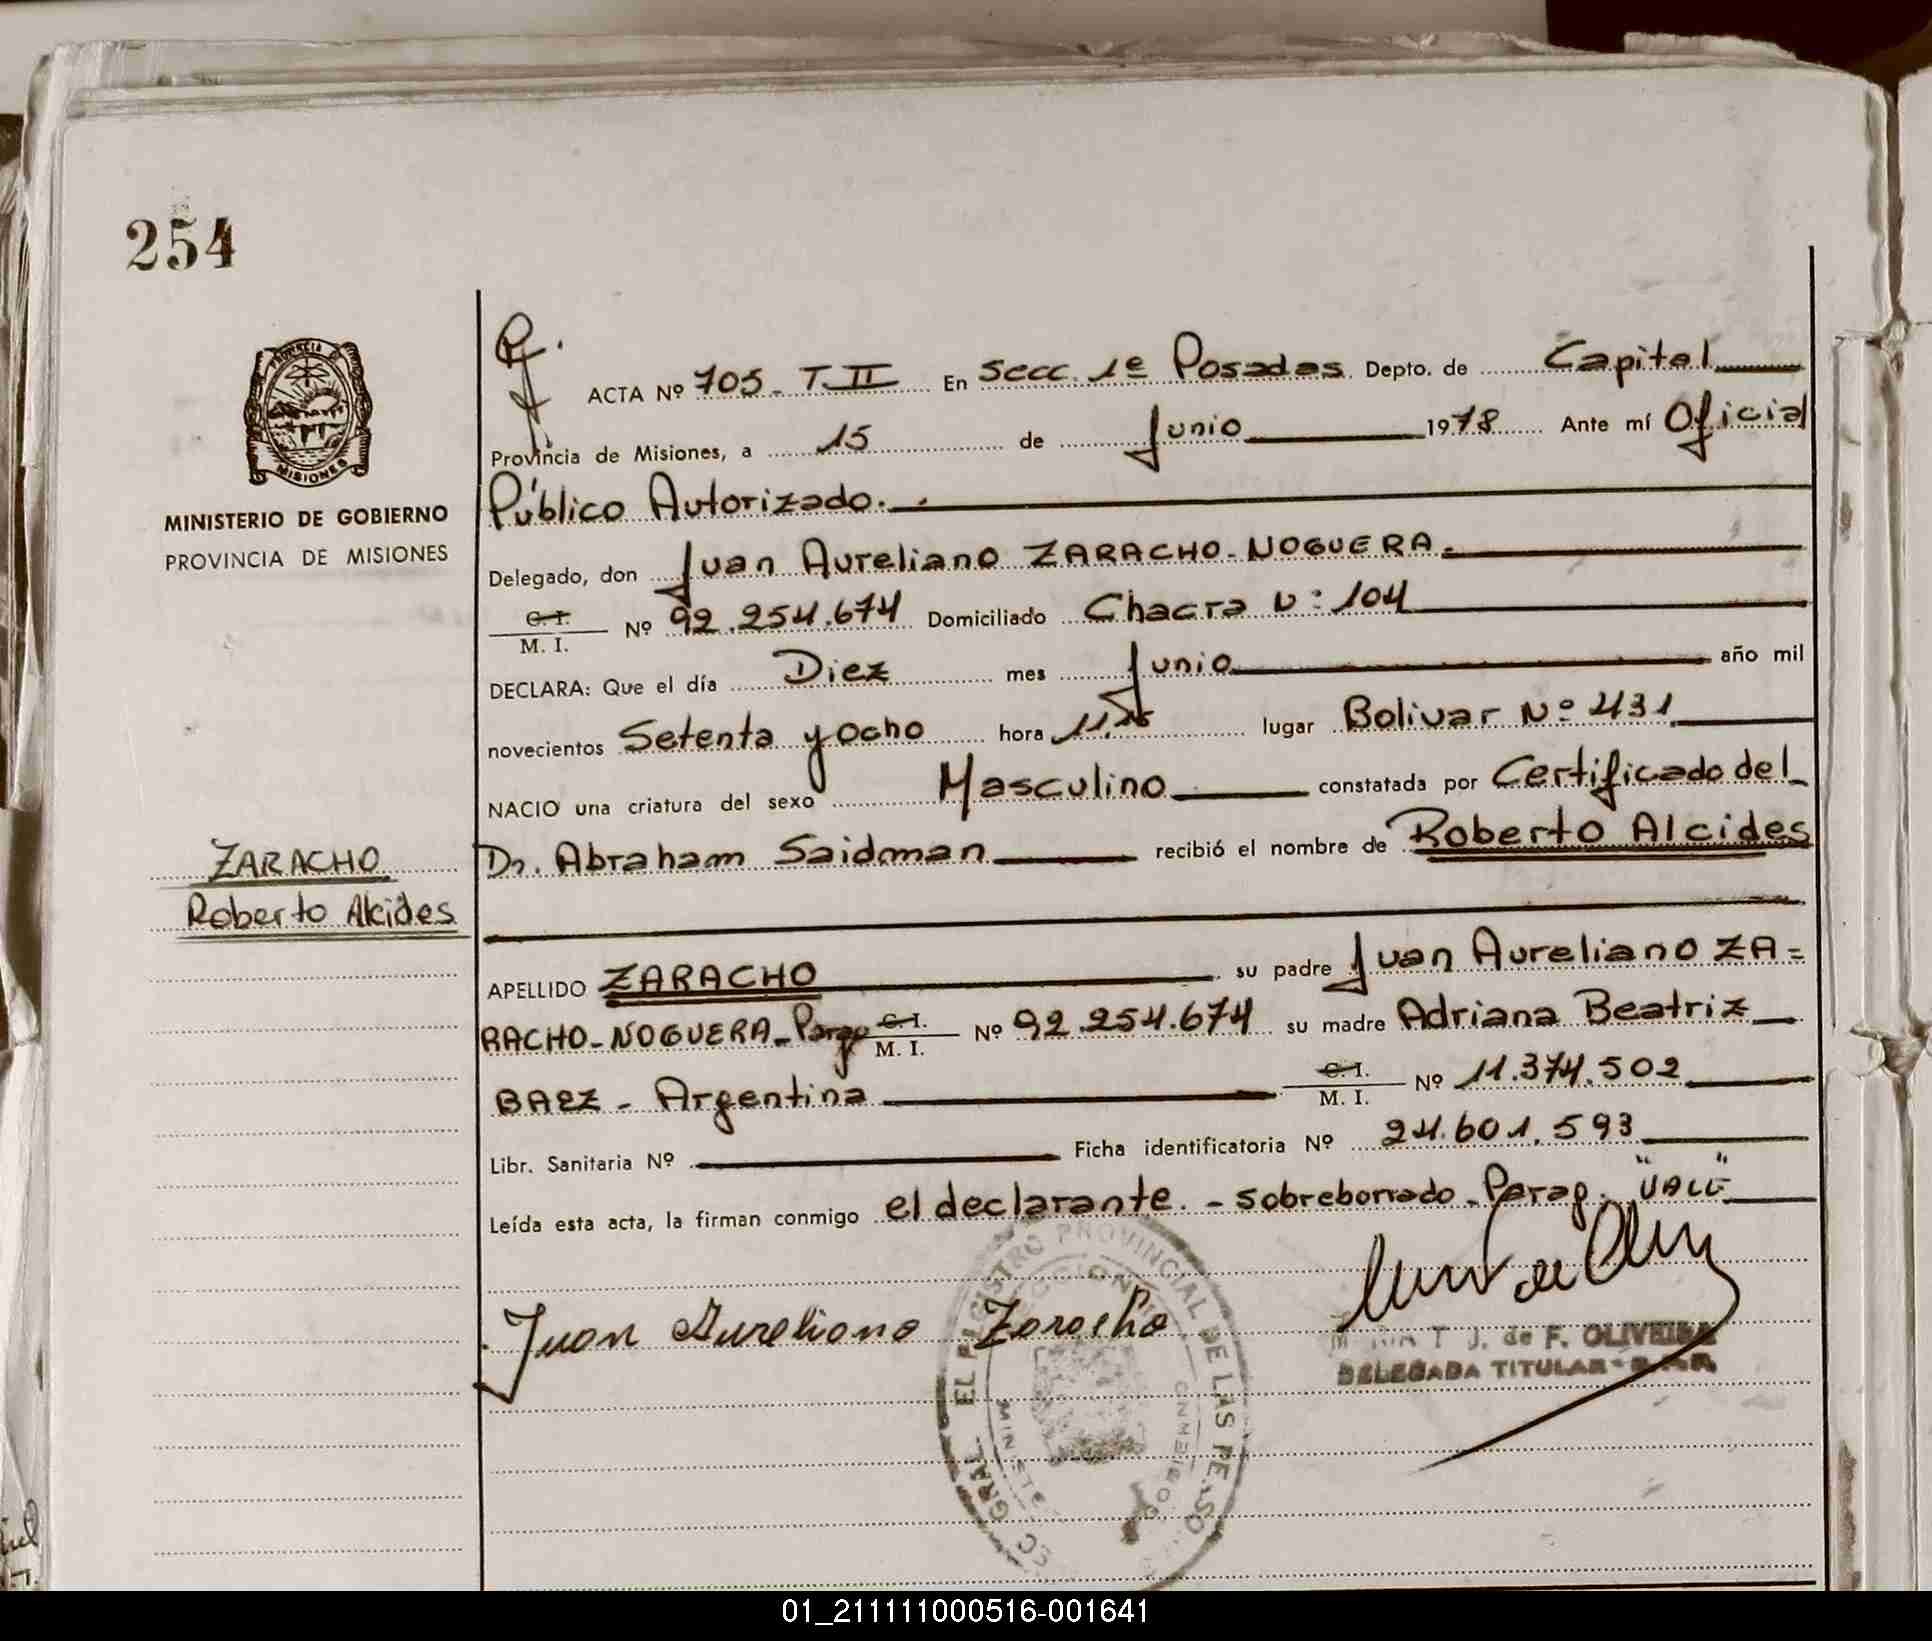 254
PROVINCIA DE
MISIONES
MINISTERIO DE GOBIERNO
PROVINCIA DE MISIONES
ZARACHO
Roberto Alcides
ACTA Nº 705 - T. II En Secc. 1ª Posadas Depto. de Capital
Provincia de Misiones, a 15 de Junio 1978 Ante mí Oficial
Público Autorizado.
Delegado, don Juan Aureliano ZARACHO-NOGUERA.
C. I.
M. I. Nº 92.254.674 Domiciliado Chacra Nº 104
DECLARA: Que el día Diez mes Junio año mil
novecientos Setenta y Ocho hora 11, lugar Bolivar Nº 431
NACIO una criatura del sexo Masculino constatada por Certificado del
Dr. Abraham Saidman recibió el nombre de Roberto Alcides
APELLIDO ZARACHO su padre Juan Aureliano ZA=
RACHO-NOGUERA- C. I. M. I. Nº 92.254.674 su madre Adriana Beatriz
BAEZ - Argentina C. I. M. I. Nº 11.374.502
Libr. Sanitaria Nº Ficha identificatoria Nº 24.601.593
Leída esta acta, la firman conmigo el declarante. - sobreborrado - Parag. "VALE"
Juan Aureliano Zaracho
T. J. de F. OLIVEIRA
DELEGADA TITULAR
GRAL. EL REGISTRO PROVINCIAL DE LAS PERSO
01_211111000516-001641